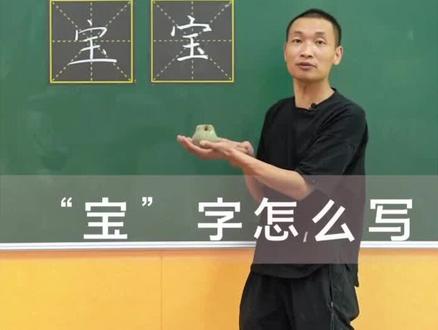 宝 宝
“宝”字怎么写